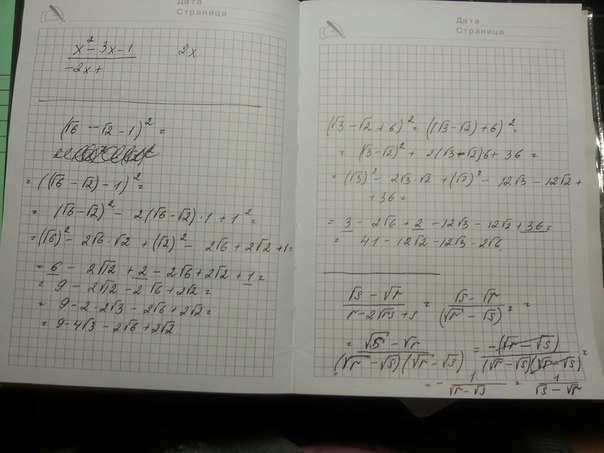 Дата
Страница
x² - 3x - 1      2x
-2x +
(√6 - √2 - 1)² =
= ((√6 - √2) - 1)² =
= (√6 - √2)² - 2(√6 - √2)·1 + 1² =
= (√6)² - 2√6·√2 + (√2)² - 2√6 + 2√2 + 1 =
= 6 - 2√12 + 2 - 2√6 + 2√2 + 1 =
= 9 - 2√12 - 2√6 + 2√2 =
= 9 - 2·2√3 - 2√6 + 2√2 =
= 9 - 4√3 - 2√6 + 2√2
Дата
Страница
(√3 - √2 + 6)² = ((√3 - √2) + 6)² =
= (√3 - √2)² + 2(√3 - √2)6 + 36 =
= (√3)² - 2√3·√2 + (√2)² - 12√3 - 12√2 +
+ 36 =
= 3 - 2√6 + 2 - 12√3 - 12√2 + 36 =
= 41 - 12√2 - 12√3 - 2√6
√s - √r / r - 2√rs + s = √s - √r / (√r - √s)² =
= √s - √r / (√r - √s)(√r - √s) = -(√r - √s) / (√r - √s)(√r - √s) =
= - 1 / √r - √s = 1 / √s - √r